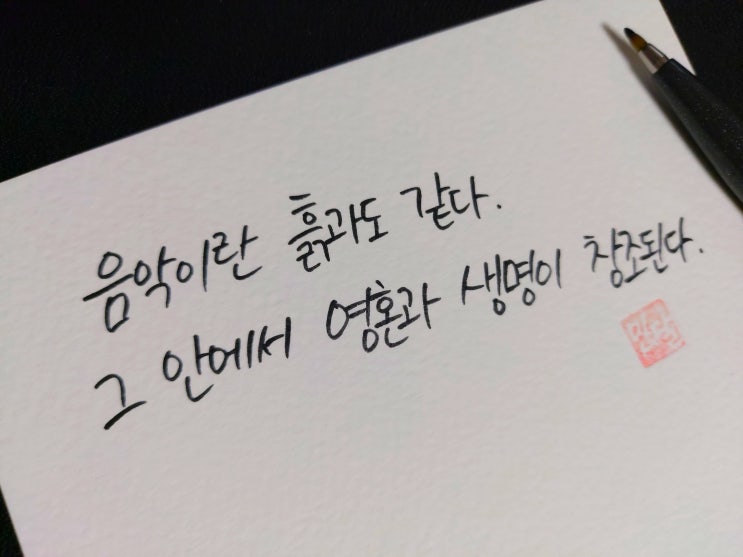 음악이란 흙과도 같다.
그 안에서 영혼과 생명이 창조된다.